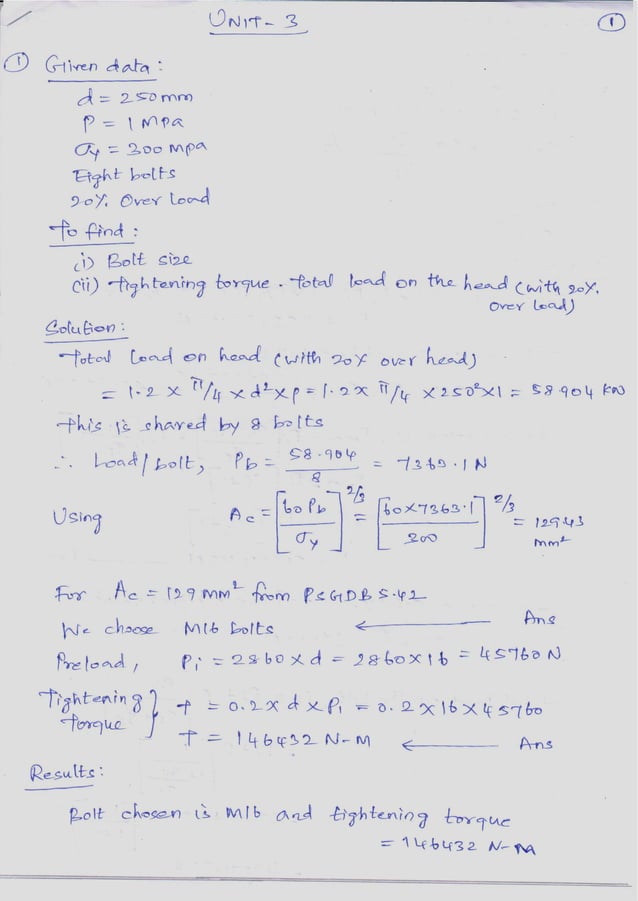 UNIT - 3
1
① Given data :
d = 250mm
P = 1 MPa
σy = 300 Mpa
Eight bolts
20%. Over load
To find :
(i) Bolt size
(ii) Tightening torque . Total load on the head (with 20%.
over load)
Solution :
Total load on head (with 20% over head)
= 1.2 x π/4 x d² x p = 1.2 x π/4 x 250² x 1 = 58.904 KN
This is shared by 8 bolts
∴ Load / bolt, Pb = 58.904 / 8 = 7363.1 N
Using Ac = [60 Pb / σy]^2/3 = [60x7363.1 / 300]^2/3 = 129.43 mm²
For Ac = 129 mm² from PSGDB 5.42
We choose M16 bolts ← Ans
Preload, Pi = 2860 x d = 2860 x 16 = 45760 N
Tightening torque } T = 0.2 x d x Pi = 0.2 x 16 x 45760
T = 146432 N-M ← Ans
Results :
Bolt chosen is M16 and tightening torque
= 146432 N-m